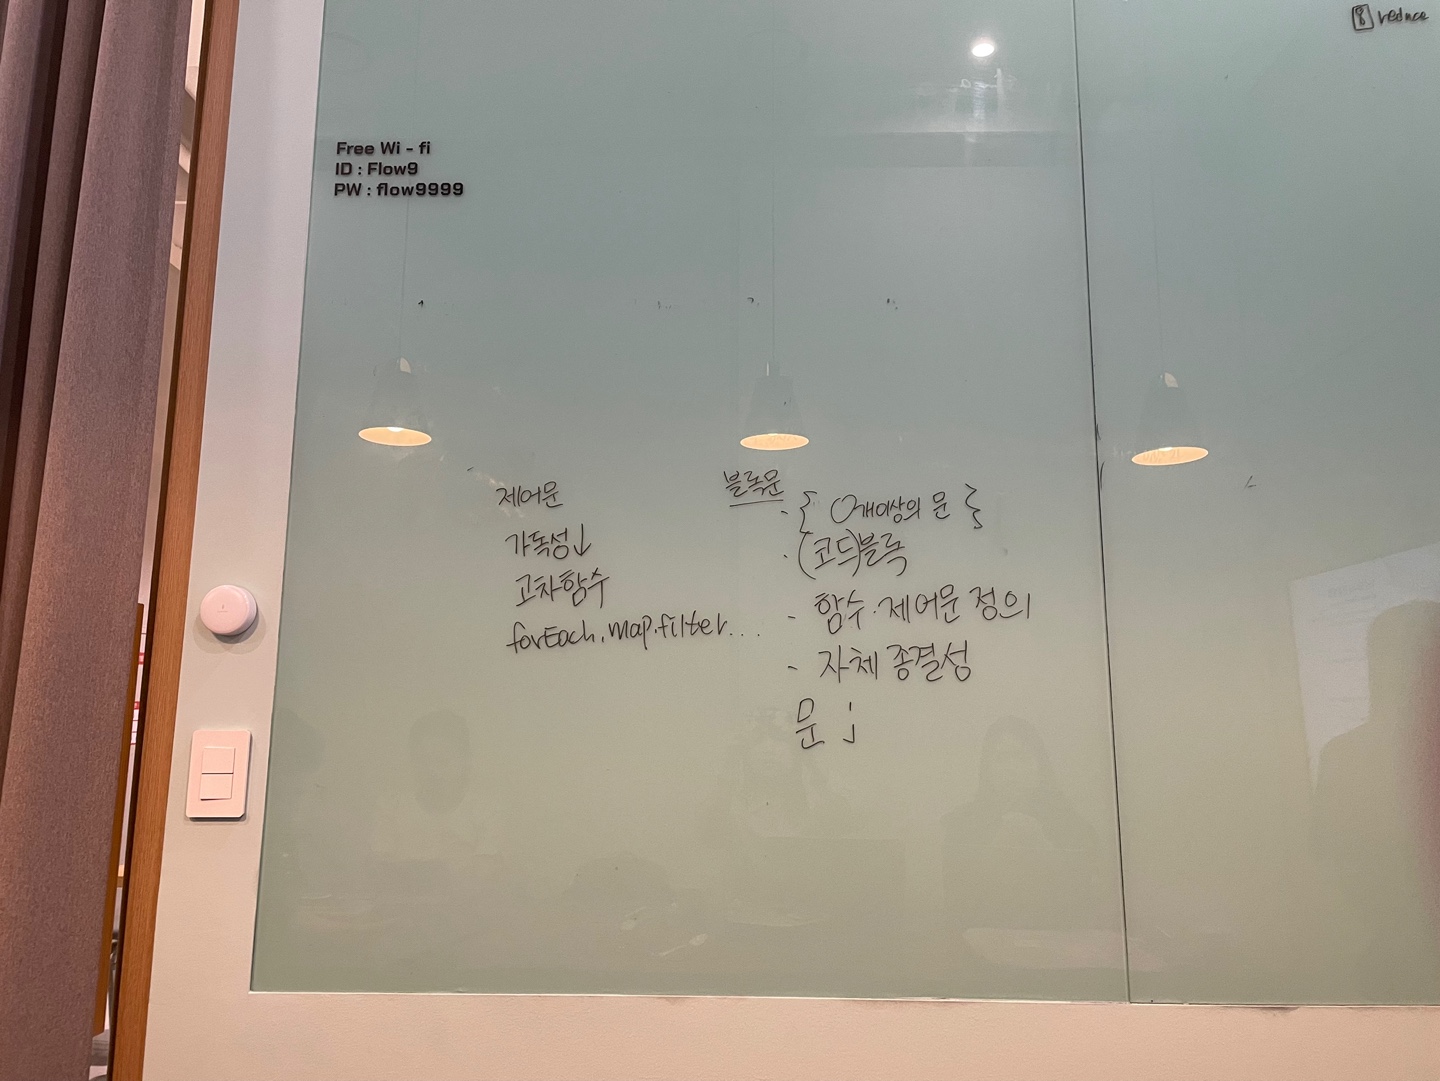 8 reduce
Free Wi - fi
ID : Flow9
PW : flow9999
제어문
가독성↓
고차함수
forEach.map.filter...
블록문
- { 0개이상의 문 }
- (코드)블록
- 함수·제어문 정의
- 자체 종결성
문 ;